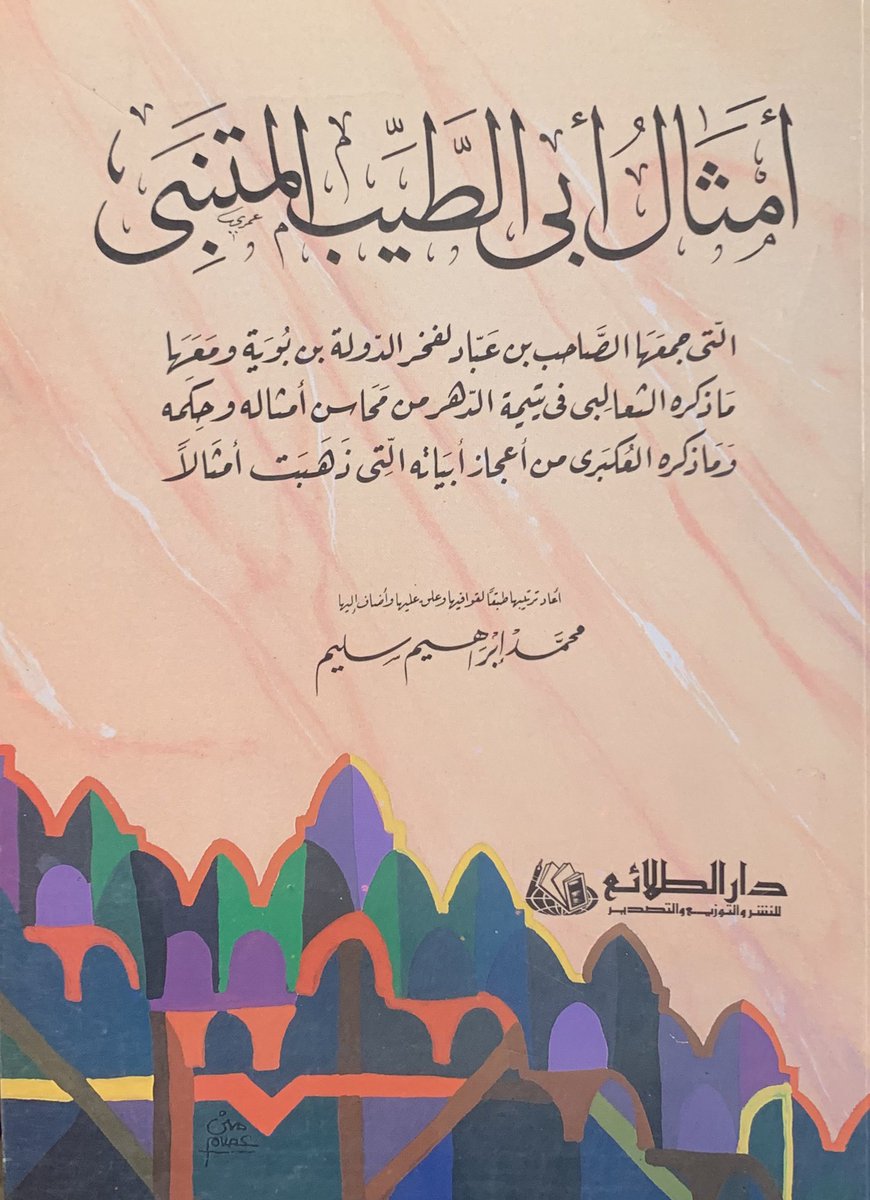 أمثَالُ أبى الطَّيِّب المتنِبى
التى جمعَهَا الصَّاحب بن عَبّاد لفخر الدّولة بن بُوَيَة ومَعَهَا
مَا ذكره الثعالبى فى يتيمة الدّهر من مَحَاسن أمثاله وحِكَمه
وَمَا ذكره العُكبَرى من أعجاز أبيَاته التِى ذَهَبَت أمثَالاً
أعاد ترتيبها طبقًا لقوافيها وعلق عليها وأضاف إليها
محمَّد إبْرَاهيم سليم
دار الطلائع
للنشر والتوزيع والتصدير